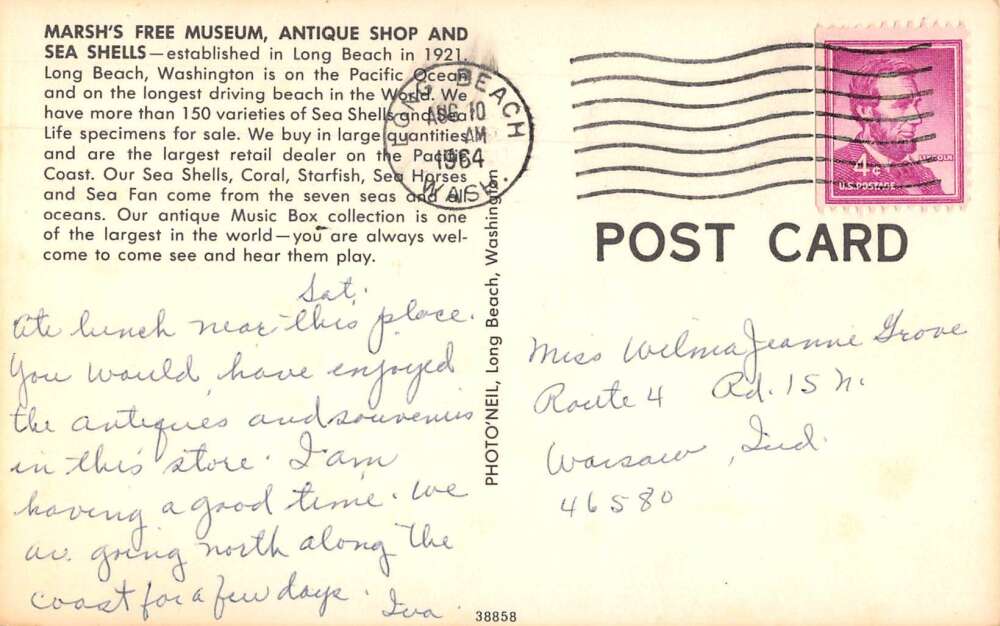 MARSH'S FREE MUSEUM, ANTIQUE SHOP AND
SEA SHELLS—established in Long Beach in 1921.
Long Beach, Washington is on the Pacific Ocean
and on the longest driving beach in the World. We
have more than 150 varieties of Sea Shells and Sea
Life specimens for sale. We buy in large quantities
and are the largest retail dealer on the Pacific
Coast. Our Sea Shells, Coral, Starfish, Sea Horses
and Sea Fan come from the seven seas and all
oceans. Our antique Music Box collection is one
of the largest in the world—you are always wel-
come to come see and hear them play.
Sat.
Ate lunch near this place.
You would have enjoyed
the antiques and souvenirs
in this store. I am
having a good time. We
are going north along the
coast for a few days. Iva.
PHOTO'NEIL, Long Beach, Washington
38858
LONG BEACH
AUG 10
AM
1964
WASH.
LINCOLN
4¢
U.S. POSTAGE
POST CARD
Miss Wilma Jeanne Grove
Route 4 Rd. 15 N.
Warsaw, Ind.
46580